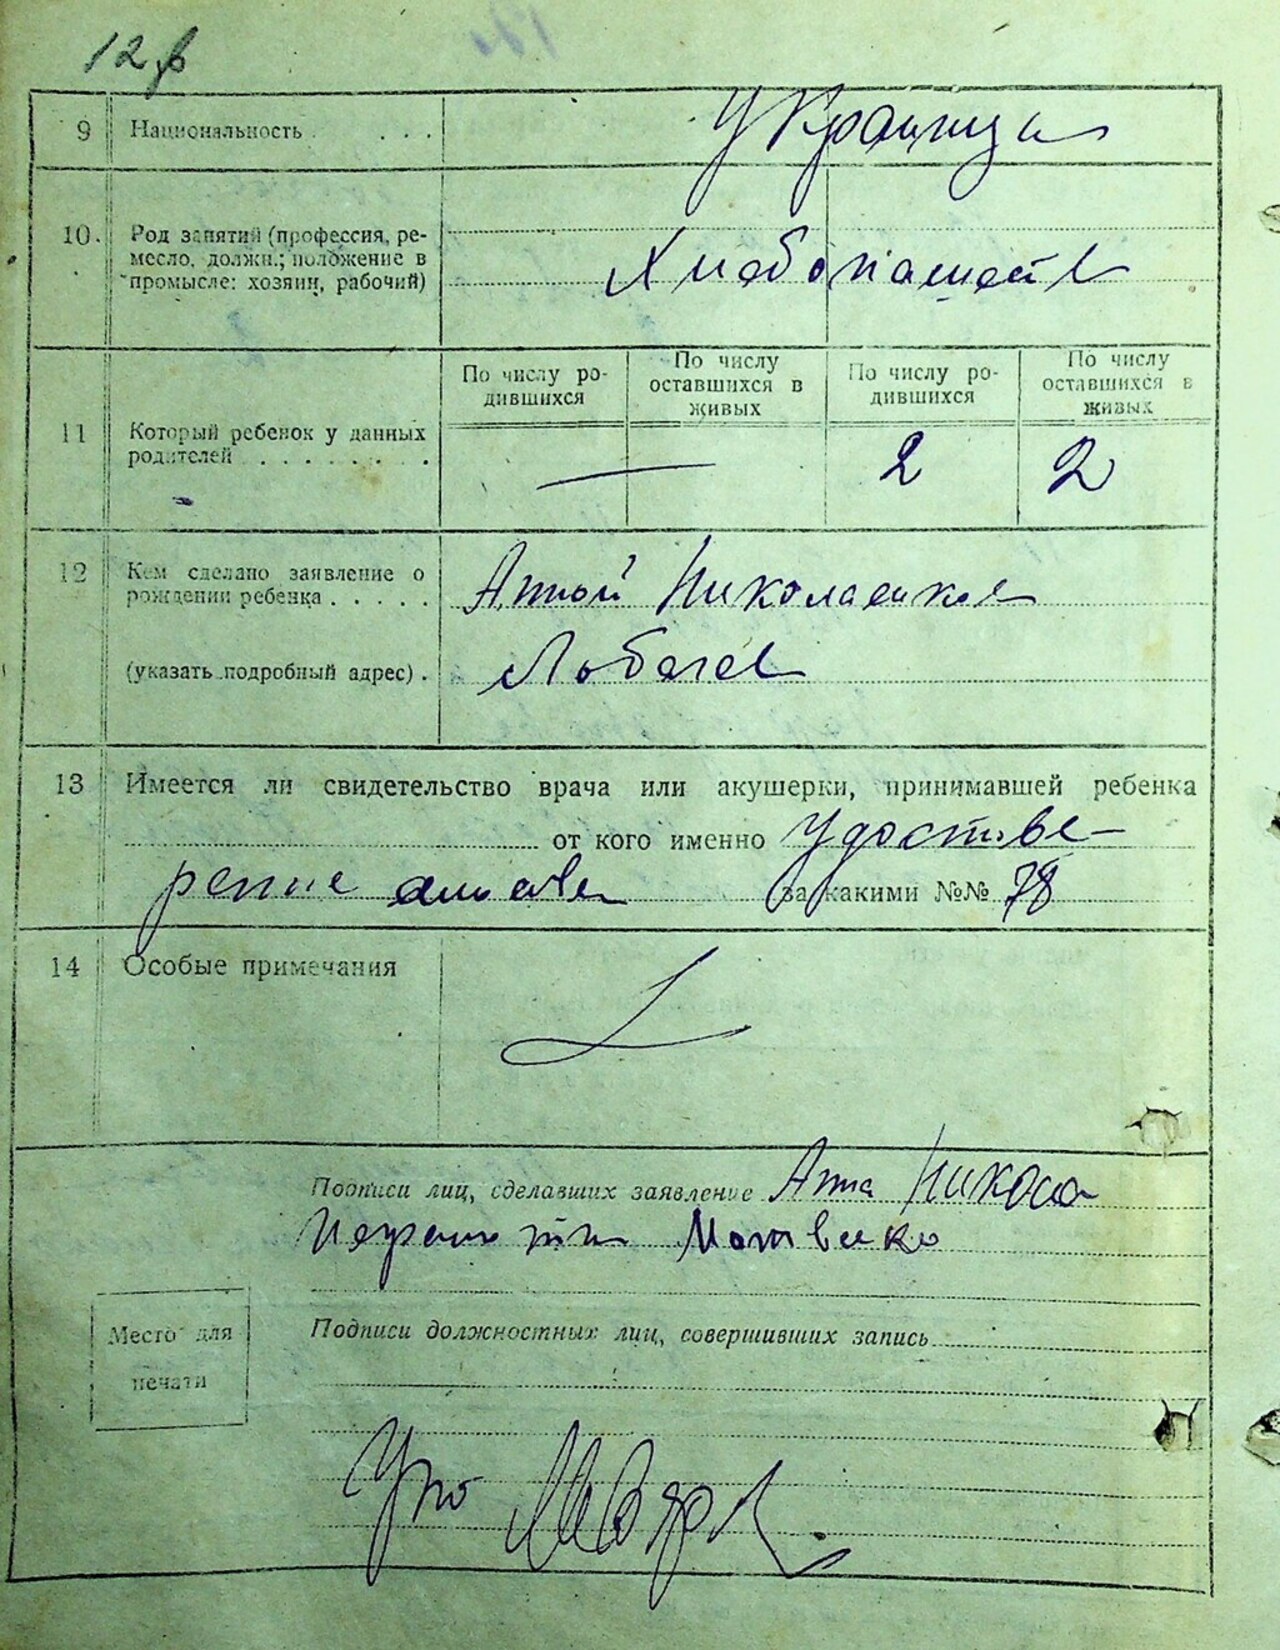 12
9 Национальность . . . . Украинцы
10. Род занятий (профессия, ре-
месло, должн.; положение в
промысле: хозяин, рабочий)
Хлебопашест
11 Который ребенок у данных
родителей . . . . . . . .
По числу ро-
дившихся
По числу
оставшихся в
живых
По числу ро-
дившихся
По числу
оставшихся в
живых
— 2 2
12 Кем сделано заявление о
рождении ребенка . . . . .
Анной Николаенков
(указать подробный адрес) .
13 Имеется ли свидетельство врача или акушерки, принимавшей ребенка
от кого именно Удостове-
рение за какими №№ 78
14 Особые примечания
Подписи лиц, сделавших заявление Анна Никола
Матвиенко
Место для
печати
Подписи должностных лиц, совершивших запись